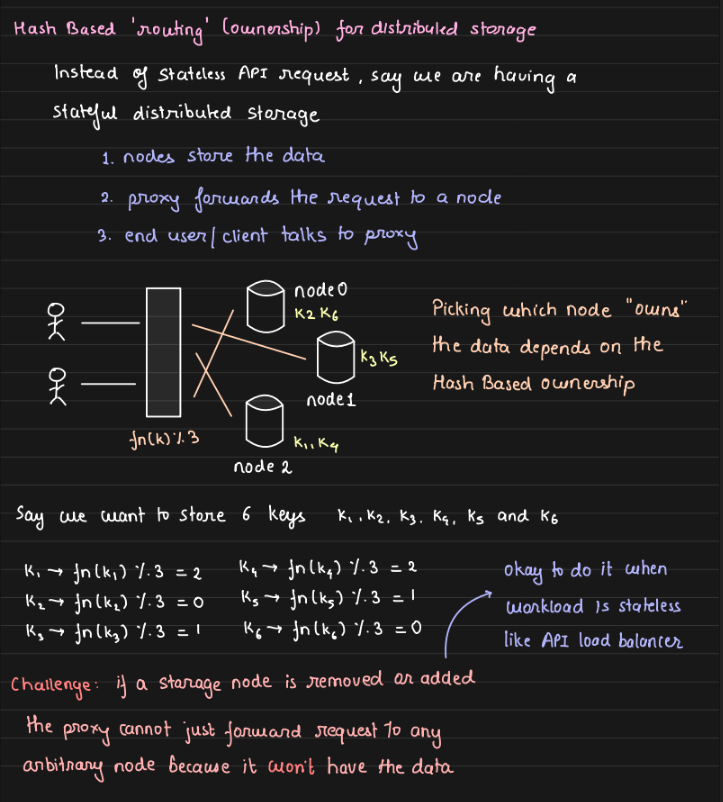 Hash Based 'routing' (ownership) for distributed storage
Instead of stateless API request, say we are having a
stateful distributed storage
1. nodes store the data
2. proxy forwards the request to a node
3. end user/client talks to proxy
node 0
K2 K6
K3 K5
node 1
K1, K4
node 2
fn(k) % 3
Picking which node "owns"
the data depends on the
Hash Based ownership
Say we want to store 6 keys K1, K2, K3, K4, K5 and K6
K1 → fn(K1) % 3 = 2
K2 → fn(K2) % 3 = 0
K3 → fn(K3) % 3 = 1
K4 → fn(K4) % 3 = 2
K5 → fn(K5) % 3 = 1
K6 → fn(K6) % 3 = 0
okay to do it when
workload is stateless
like API load balancer
Challenge: if a storage node is removed or added
the proxy cannot just forward request to any
arbitrary node because it won't have the data